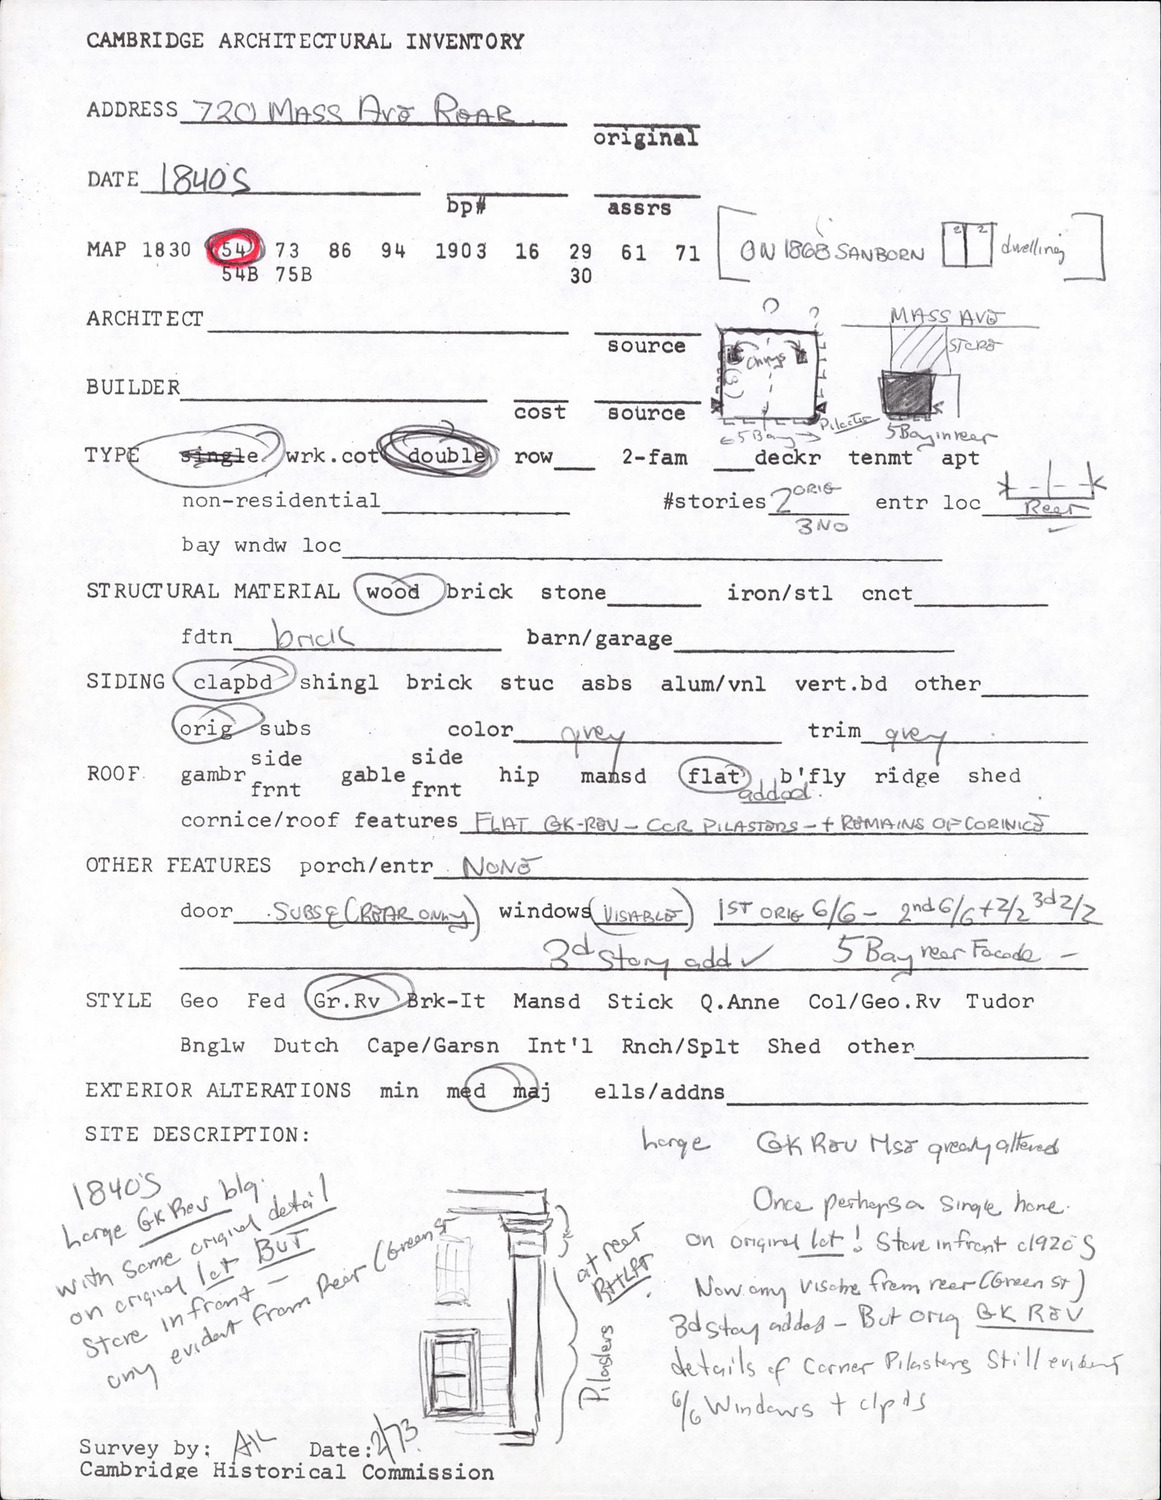 CAMBRIDGE ARCHITECTURAL INVENTORY
ADDRESS 720 MASS AVE REAR
original
DATE 1840'S
bp# assrs
MAP 1830 54 73 86 94 1903 16 29 61 71
54B 75B 30
[ON 1868 SANBORN 2 2 dwelling]
ARCHITECT
source
? ?
Chmys
←5 Bay→ Pilaster
MASS AVE
STORE
5 Bay in rear
BUILDER
cost source
TYPE single wrk.cot double row 2-fam deckr tenmt apt
non-residential #stories 2 ORIG entr loc
3 NO Rear
bay wndw loc
STRUCTURAL MATERIAL wood brick stone iron/stl cnct
fdtn brick barn/garage
SIDING clapbd shingl brick stuc asbs alum/vnl vert.bd other
orig subs color grey trim grey
side side
ROOF gambr gable hip mansd flat b'fly ridge shed
frnt frnt added
cornice/roof features FLAT GK-REV - COR PILASTERS - + REMAINS OF CORINICE
OTHER FEATURES porch/entr NONE
door SUBSE (REAR ONLY) windows (VISABLE) 1ST ORIG 6/6 - 2nd 6/6 + 2/2 3d 2/2
3d Story add ✓ 5 Bay rear Facade -
STYLE Geo Fed Gr.Rv Brk-It Mansd Stick Q.Anne Col/Geo.Rv Tudor
Bnglw Dutch Cape/Garsn Int'l Rnch/Splt Shed other
EXTERIOR ALTERATIONS min med maj ells/addns
SITE DESCRIPTION:
Large GK REV Hse greatly altered
1840'S
Large GK Rev blg.
with some original detail
on original lot BUT
Store in front -
only evident from Rear (Green St
at rear
RT + LFT
Pilasters
Once perhaps a single home
on original lot! Store in front c1920'S
Now only visable from rear (Green St)
3d Story added - But orig GK REV
details of Corner Pilasters Still evident
6/6 Windows + clpds
Survey by: Date: 2/73
Cambridge Historical Commission